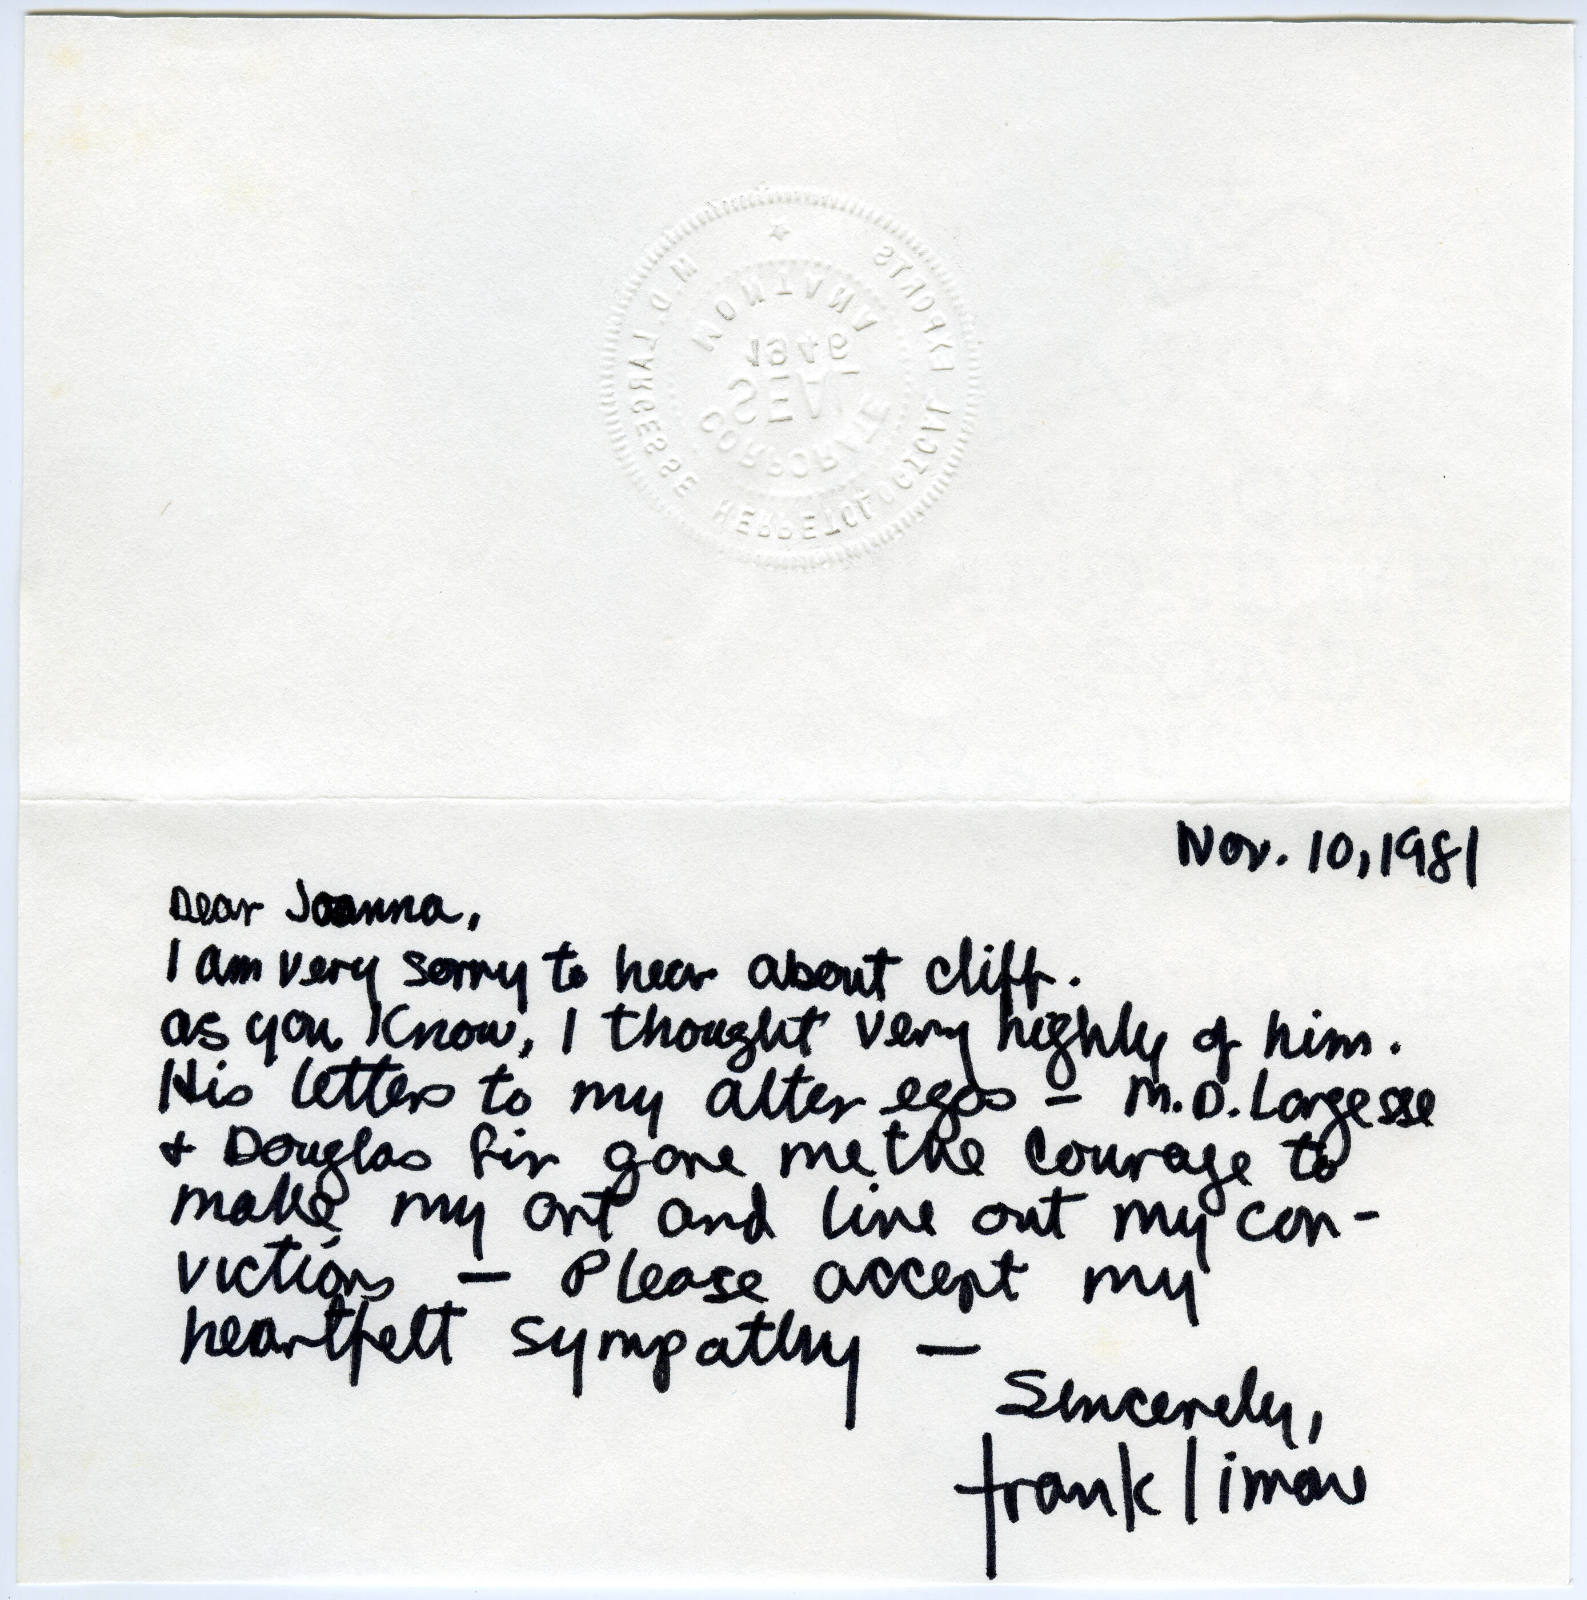 M.D. LARGESSE HERPETOLOGICAL EXPORTS
MONTANA
1946
SEAL
CORPORATE
Nov. 10, 1981
Dear Joanna,
I am very sorry to hear about Cliff.
as you know, I thought very highly of him.
His letters to my alter egos – M.D. Largesse
+ Douglas Fir gave me the courage to
make my art and live out my con-
victions — Please accept my
heartfelt sympathy —
Sincerely,
frank limow